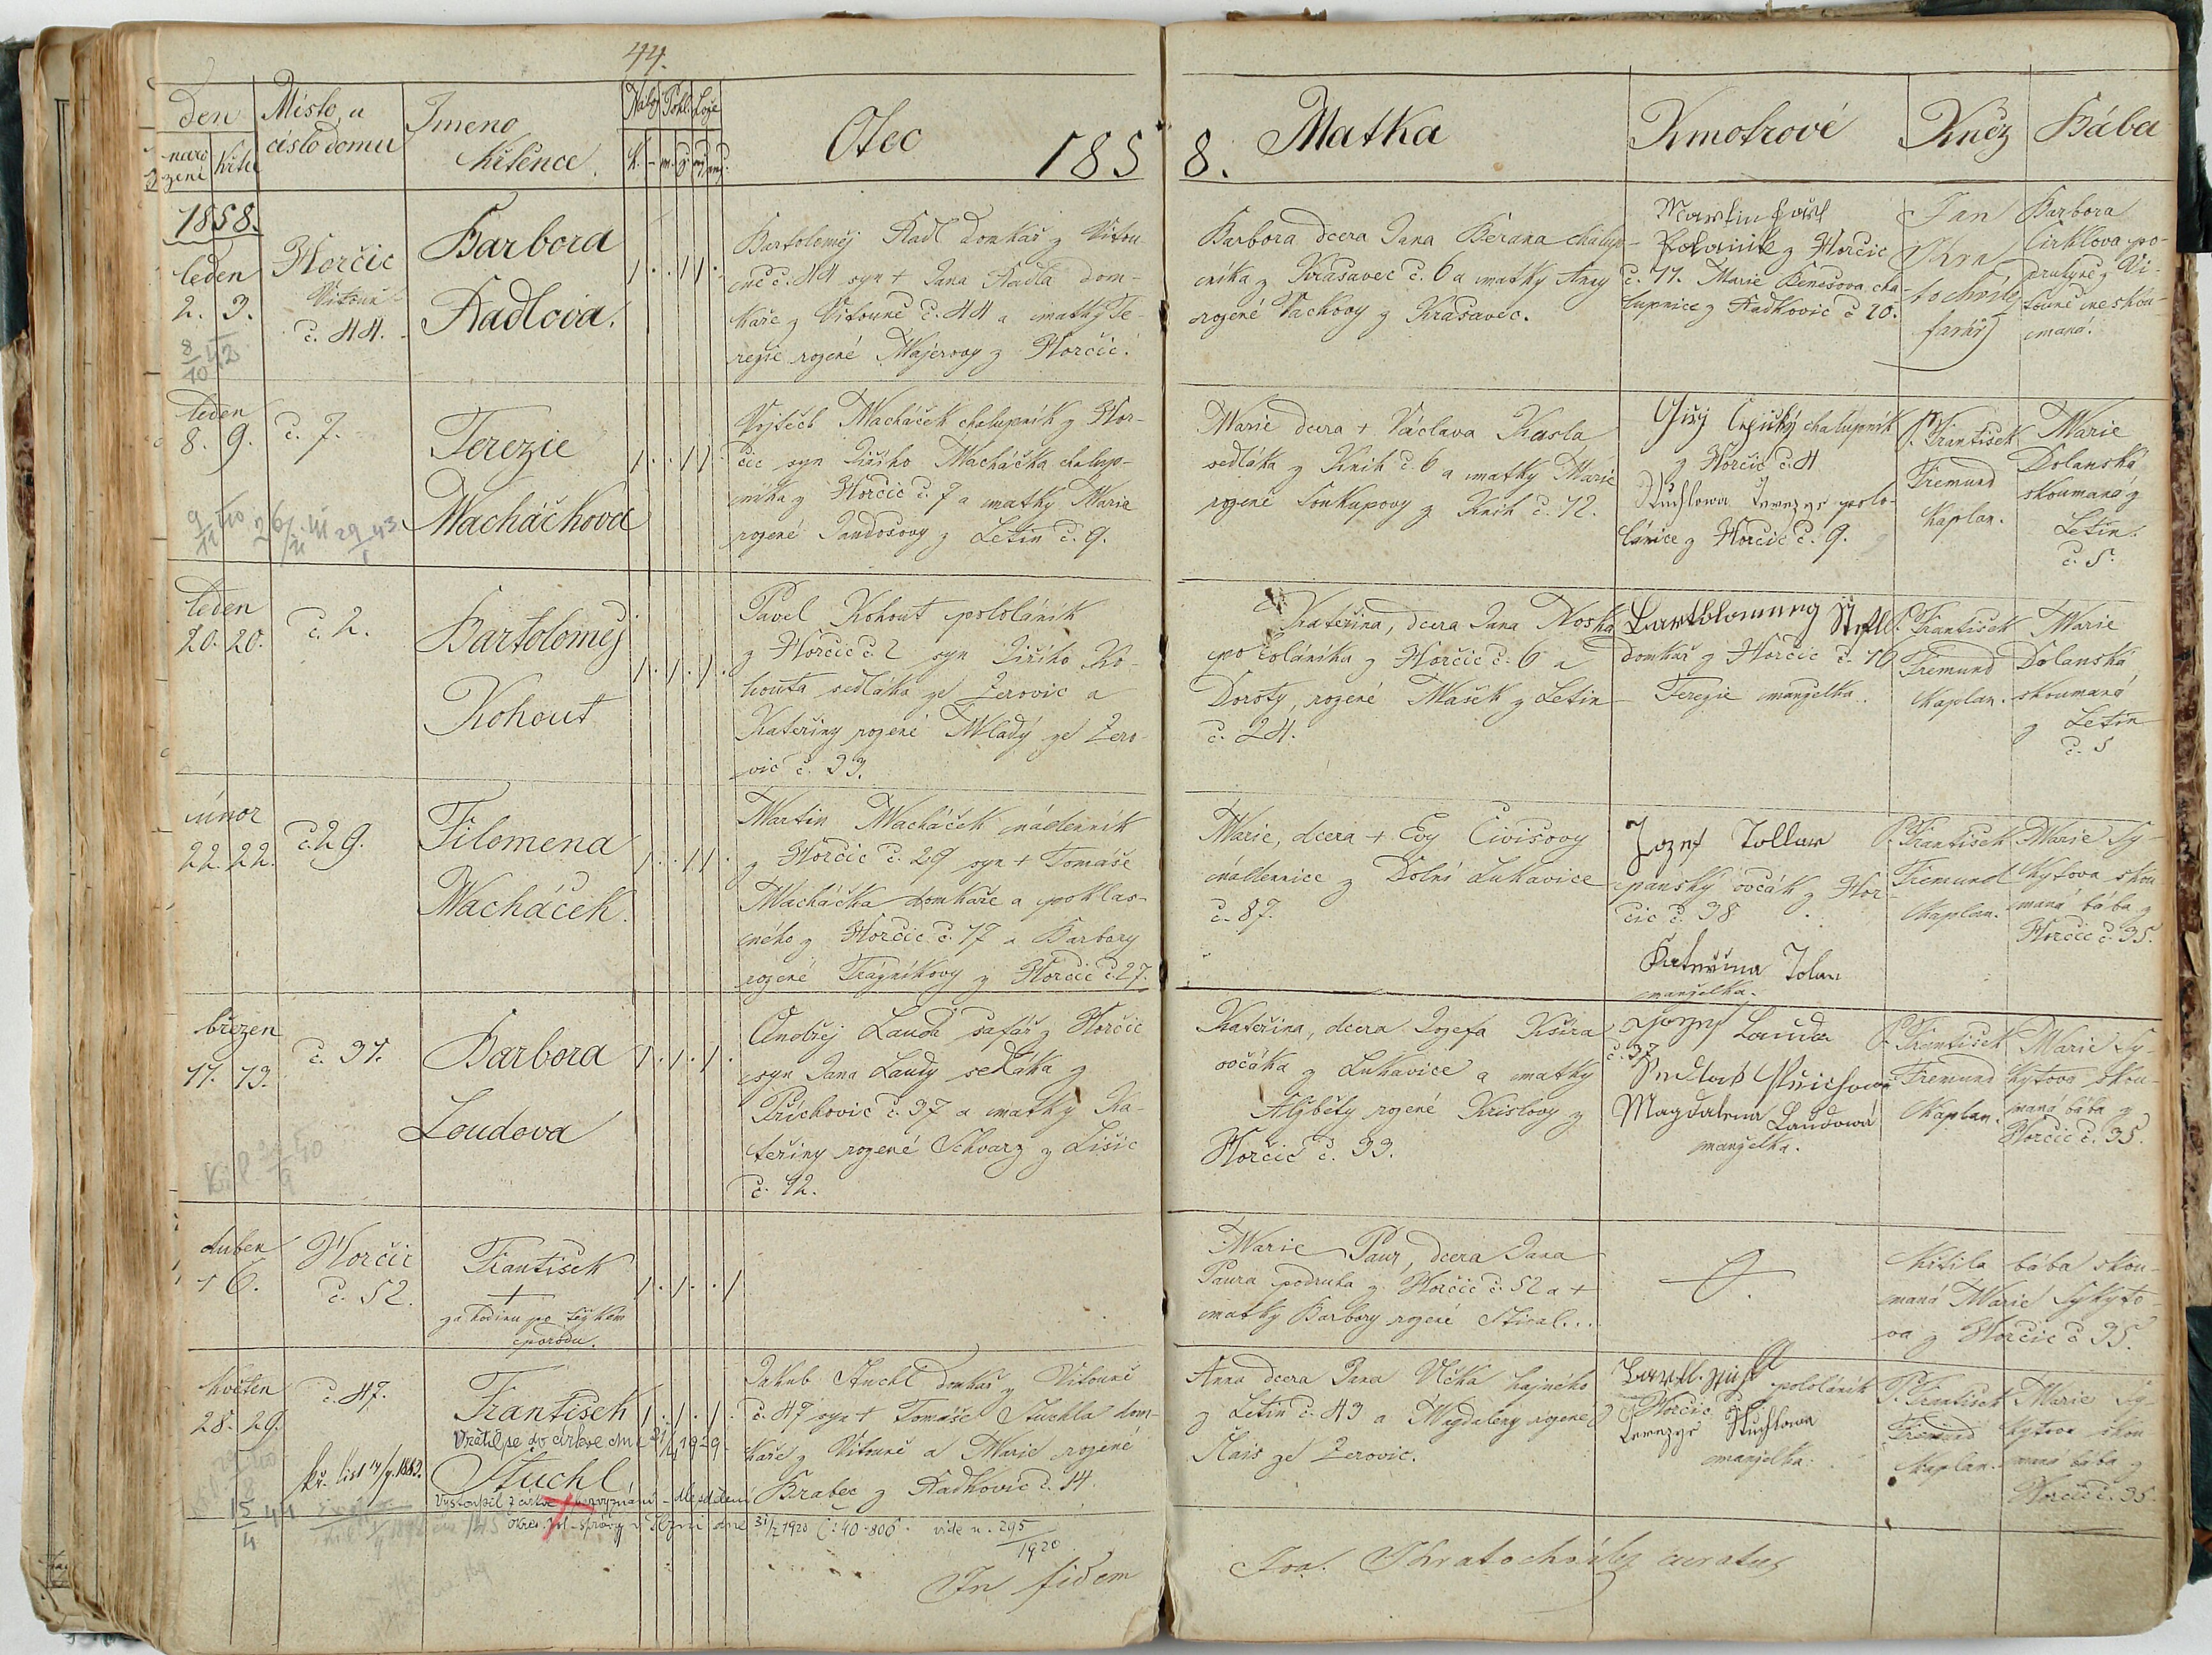 44.
den
Místo, a
číslo domu
Jmeno
křtěnce.
Náb. Pohl. Lože
naro
zení
křtu
Otec
185
8.
Matka
Kmotrové
Kněz
Bába
1858.
leden
2. 3.
Horčic
Vitouň
č. 44.
Barbora
Kadlova.
Bartoloměj Kadl domkař z Vitou
ně č. 44 syn + Jana Kadla dom-
kaře z Vitouně č. 44 a matky Te-
rezie rozené Majerovy z Horčic.
Barbora dcera Jana Berana chalup-
níka z Krasavec č. 6 a matky Anny
rozené Vackovy z Krasavec.
Martin
z Horčic
č. 11. Marie Benešova cha-
lupnice z Radkovic č 20.
Jan
Chra-
tochvile
farář
Barbora
Cirklova po-
druhyně z Vi-
touně neskou-
maná.
8/10 42
leden
8. 9.
č. 7.
Terezie
Macháčkova
Vojtěch Macháček chalupník z Hor-
čic syn Jiřího Macháčka chalup-
níka z Horčic č. 7 a matky Marie
rozené Jandošovy z Letin č. 9.
Marie dcera + Václava Kasla
sedláka z Knih č. 6 a matky Marie
rozené Soukupovy z Knih č. 12.
Jiřj chalupník
z Horčic č. 4
Stuchlowa Terezye polo-
lánice z Horčic č. 9.
P. František
Fremund
Kaplan.
Marie
Dolanská
skoumaná z
Letin.
č. 5.
leden
20. 20.
č. 2.
Bartoloměj
Kohout
Pavel Kohout pololáník
z Horčic č. 2 syn Jiřího Ko-
houta sedláka ze Žerovic a
Kateřiny rozené Mladý ze Žero-
vic č. 33.
Kateřina, dcera Jana Noska
pololáníka z Horčic č. 6 a
Doroty, rozené Mašek z Letin
č. 24.
domkař z Horčic č. 10
Terezie manželka.
P. František
Fremund
Kaplan.
Marie
Dolanská
skoumaná
z Letin
č. 5
únor
22. 22.
č. 29.
Filomena
Macháček.
Martin Macháček nádenník
z Horčic č. 29 syn + Tomáše
Macháčka domkaře a poklas-
ného z Horčic č. 17 a Barbory
rozené Trágníkovy z Horčic č. 27.
Marie, dcera + Evy Čivišovy
nádennice z Dolní Lukavice
č. 87.
Jozef Tollar
panský ovčák z Hor-
čic č. 38
Kateřina Tolar
manželka.
P. František
Fremund
Kaplan.
Marie Sy-
kytova skou
maná bába z
Horčic č. 35.
březen
11. 13.
č. 31.
Barbora
Loudova
Ondřej Lauda šafář z Horčic
syn Jana Laudy sedláka z
Příchovic č. 37 a matky Ka-
teřiny rozené Schvarz z Lišic
č. 12.
Kateřina, dcera Jozefa Kšíra
ovčáka z Lukavice a matky
Alžběty rozené Krislovy z
Horčic č. 33.
Jozef Lauda
č. 37
Magdalena Laudowá
manželka.
P. František
Fremund
Kaplan.
Marie Sy-
kytova skou
maná bába z
Horčic č. 35.
duben
+ 6.
Horčic
č. 52.
František
+
za hodinu po těžkém
porodu.
Marie Paur, dcera Jana
Paura podruha z Horčic č. 52 a +
matky Barbory rozené
křtila bába skou-
maná Marie Sykyto-
va z Horčic č 35.
květen
28. 29.
č. 47.
František
Vrátil se do církve dne
Stuchl
Jakub Stuchl domkař z Vitouně
č. 47 syn + Tomáše Stuchla dom-
kaře z Vitouně a Marie rozené
Brabec z Radkovic č. 14.
Anna dcera Jana Vlčka hajného
z Letin č. 43 a Magdaleny rozené
Slais ze Žerovic.
pololáník
z Horčic č.
Terezye Stuchlowa
manželka.
P. František
Fremund
Kaplan.
Marie Sy-
kytova skou
maná bába z
Horčic č. 35.
kř. list 14/7. 1883.
15/4 44
Vystoupil z církve - bez vyznání - dle sdělení
okres. pol. správy v dne 31/7 1920 č: 40-806. vide n. 295/1920
In fidem
Joa. Chratochvilez curatus